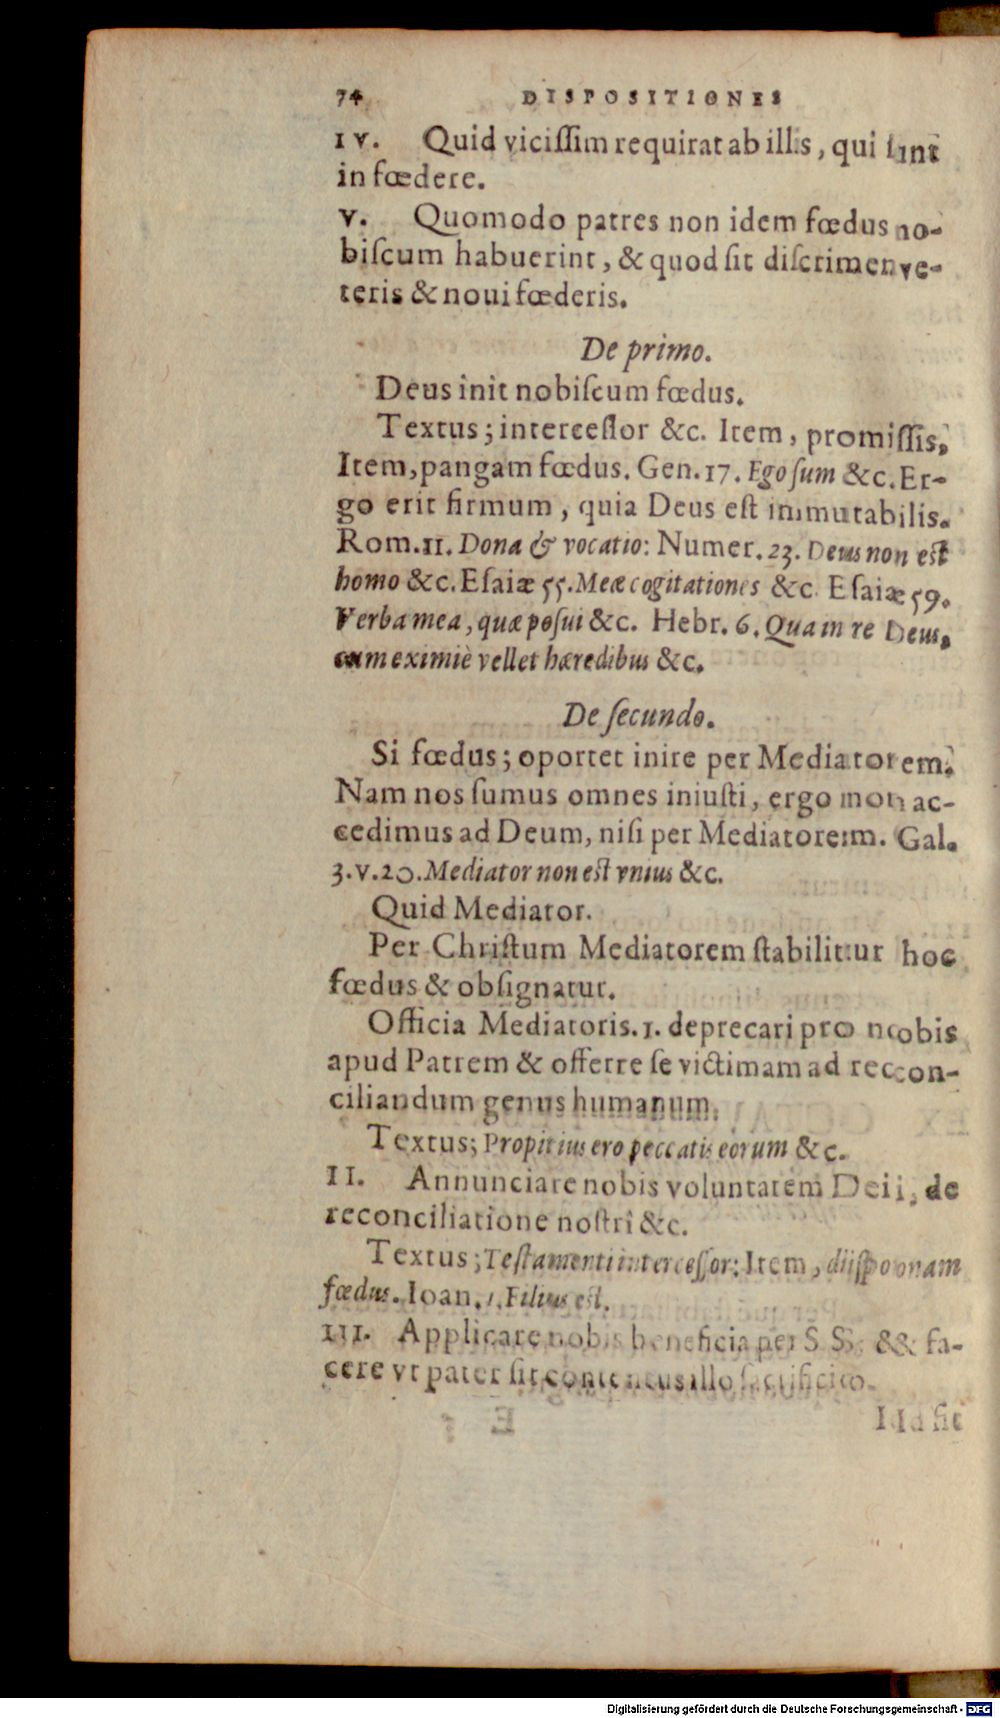 74 DISPOSITIONES
IV. Quid viciſſim requirat ab illis, qui ſint
in fœdere.
V. Quomodo patres non idem fœdus no-
biſcum habuerint, & quod ſit diſcrimen ve-
teris & noui fœderis.
De primo.
Deus init nobiſcum fœdus.
Textus; interceſſor &c. Item, promiſſis,
Item, pangam fœdus. Gen. 17. Ego ſum &c. Er-
go erit firmum, quia Deus eſt immutabilis.
Rom. 11. Dona & vocatio: Numer. 23. Deus non eſt
homo &c. Eſaiæ 55. Meæ cogitationes &c. Eſaiæ 59.
Verba mea, quæ poſui &c. Hebr. 6. Qua in re Deus,
cum eximiè vellet hæredibus &c.
De ſecundo.
Si fœdus; oportet inire per Mediatorem.
Nam nos ſumus omnes iniuſti, ergo non ac-
cedimus ad Deum, niſi per Mediatorem. Gal.
3. v. 20. Mediator non eſt vnius &c.
Quid Mediator.
Per Chriſtum Mediatorem ſtabilitur hoc
fœdus & obſignatur.
Officia Mediatoris. 1. deprecari pro nobis
apud Patrem & offerre ſe victimam ad recon-
ciliandum genus humanum.
Textus; Propitius ero peccatis eorum &c.
II. Annunciare nobis voluntatem Dei, de
reconciliatione noſtri &c.
Textus; Teſtamenti interceſſor: Item, diſponam
fœdus. Ioan. 1. Filius eſt.
III. Applicare nobis beneficia per S S. & fa-
cere vt pater ſit contentus illo ſacrificio.
Id ſit
Digitalisierung gefördert durch die Deutsche Forschungsgemeinschaft - DFG